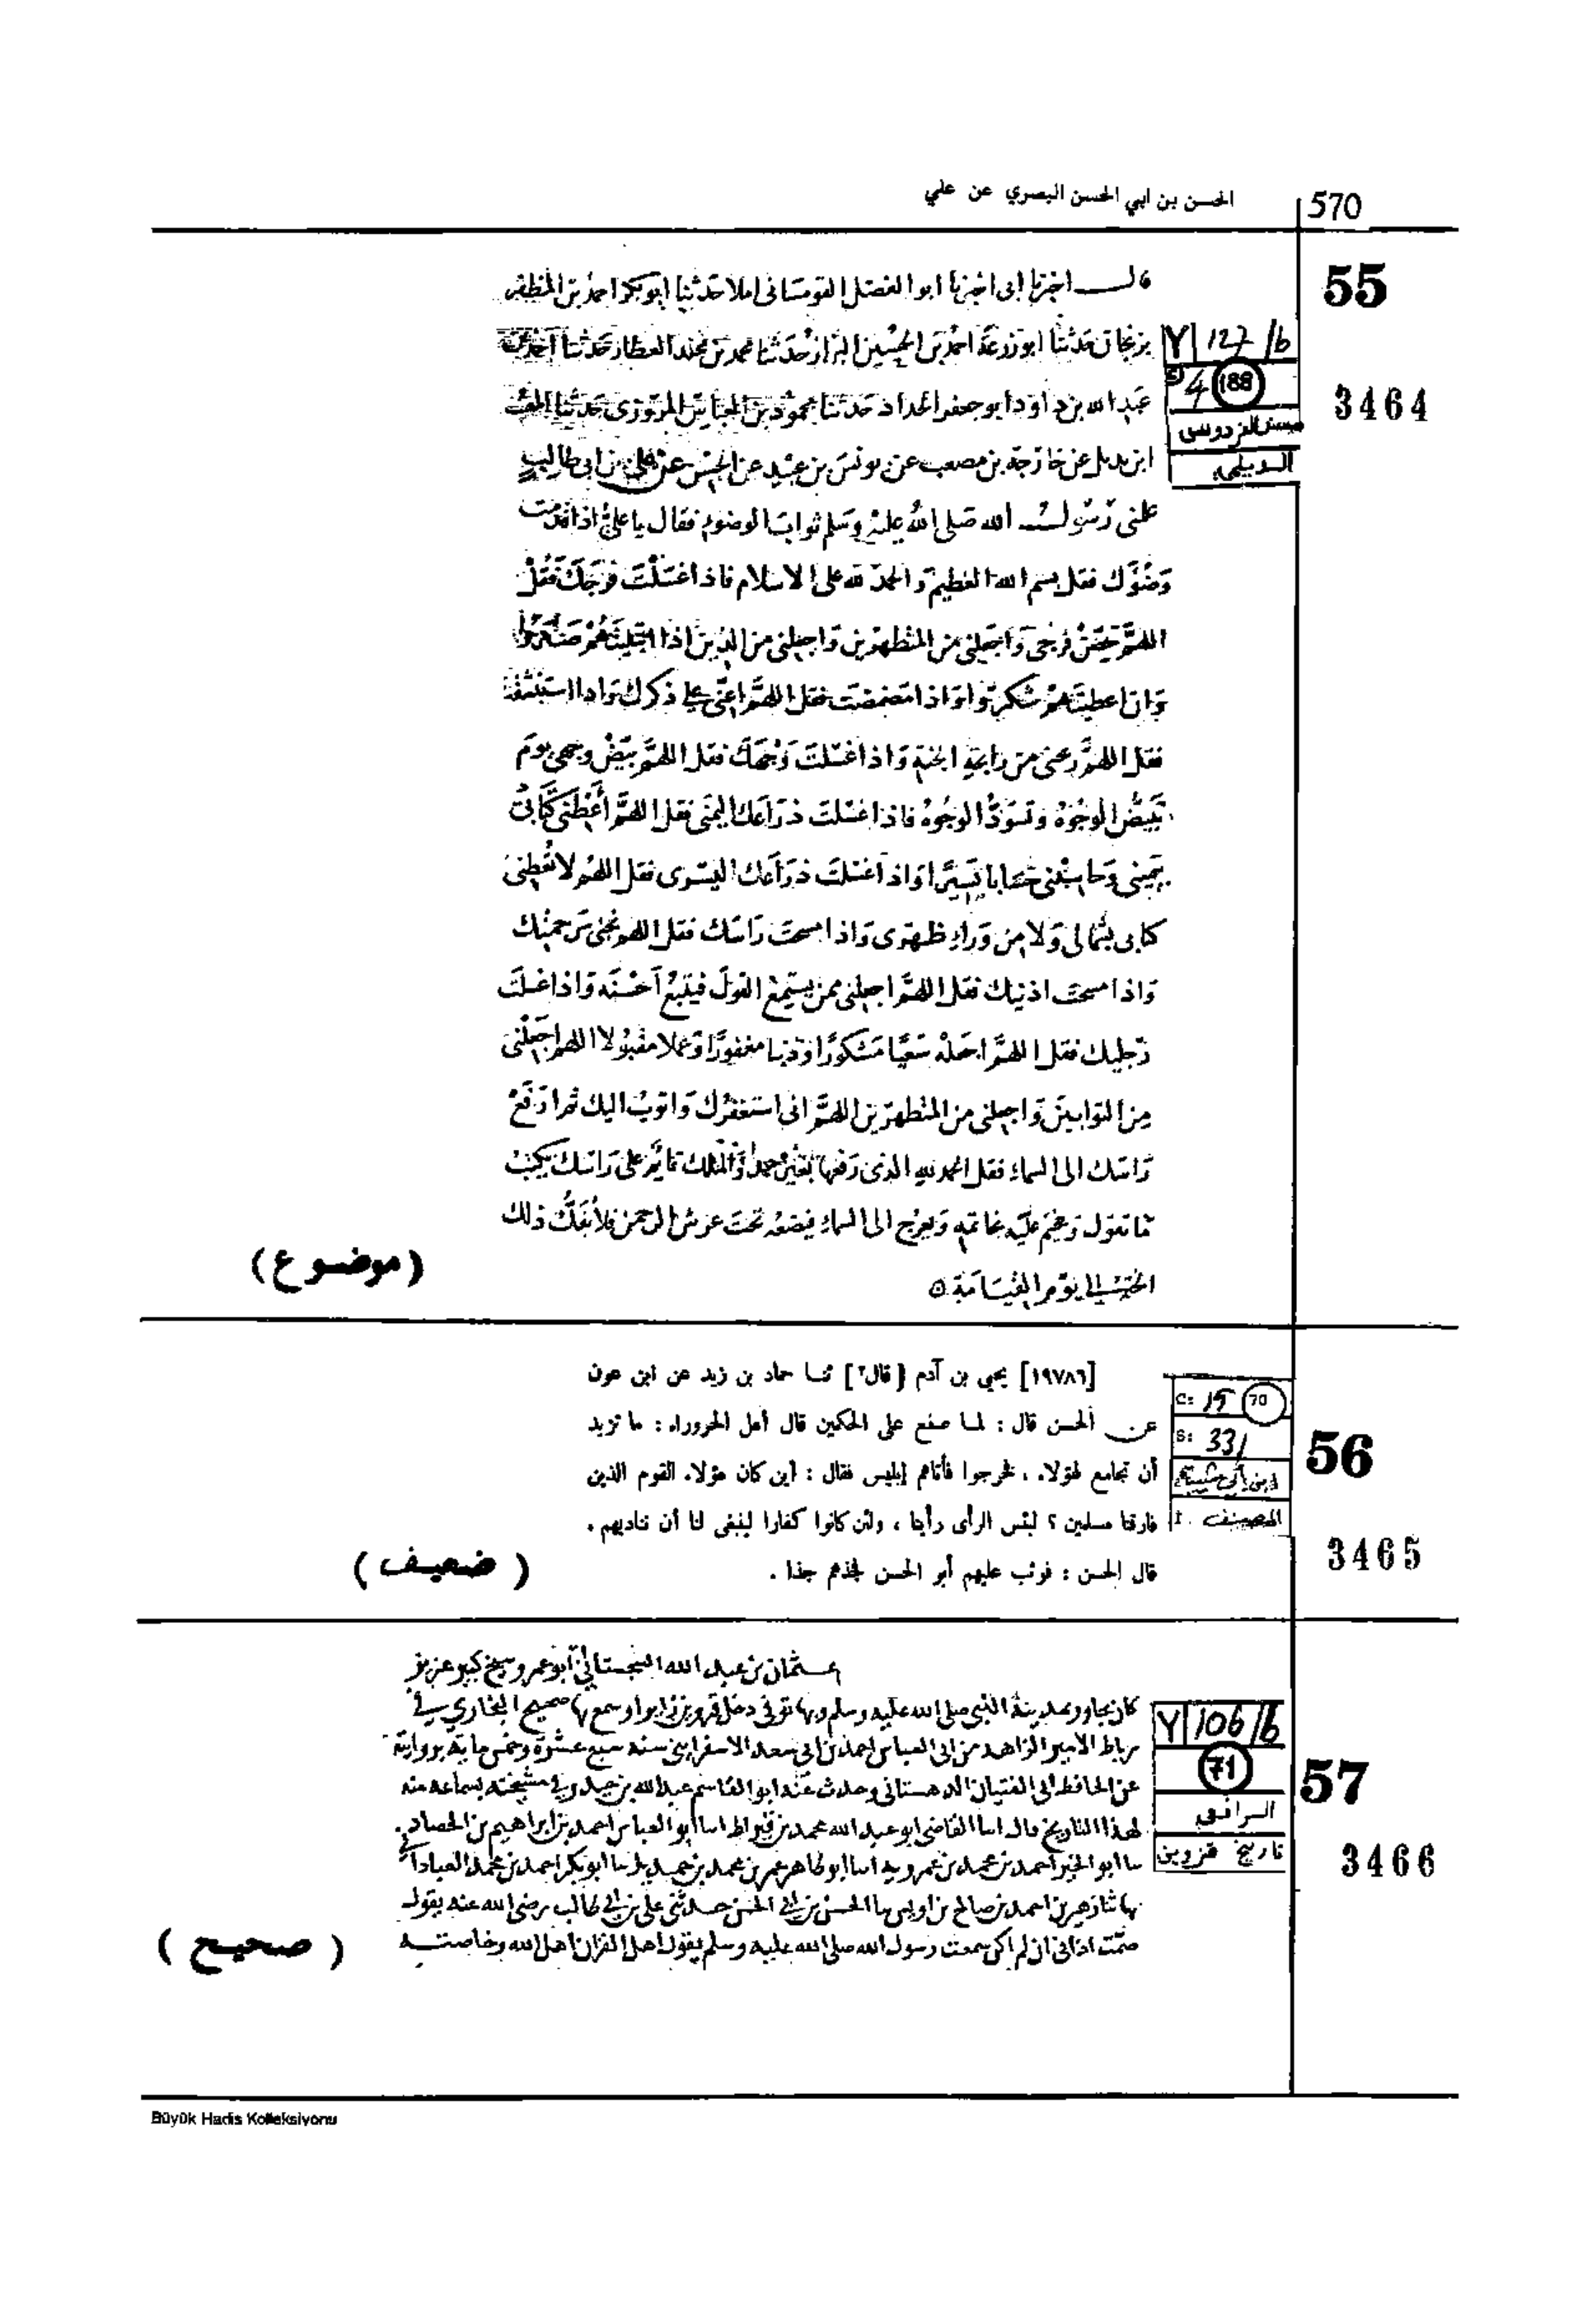 570
الحسن بن ابي الحسن البصري عن علي
55
قال اخبرنا ابى اخبرنا ابو الفضل القومسانى املا حدثنا ابو بكر احمد بن المظفر
حدثنا ابو زرعة احمد بن الحسين الزاز حدثنا محمد بن مخلد العطار حدثنا احمد بن
Y 127/b
4 188
3464
مسند الفردوس
الديلمى
عبد الله بن داود ابو جعفر الحداد حدثنا محمود بن العباس المروزى حدثنا المغيث
ابن بديل عن خارجة بن مصعب عن يونس بن عبيد عن الحسن عن على بن ابى طالب
علمنى رسول الله صلى الله عليه وسلم ثواب الوضوء فقال يا على اذا قدمت
وضوءك فقل بسم الله العظيم والحمد لله على الاسلام فاذا غسلت فرجك فقل
اللهم حصن فرجى واجعلنى من المتطهرين واجعلنى من الذين اذا ابتليتهم صبروا
واذا اعطيتهم شكروا واذا تمضمضت فقل اللهم اعنى على ذكرك واذا استنشقت
فقل اللهم رحنى من رايحة الجنة واذا غسلت وجهك فقل اللهم بيض وجهى يوم
تبيض الوجوه وتسود الوجوه فاذا غسلت ذراعك اليمنى فقل اللهم أعطنى كتابى
بيمينى وحاسبنى حسابا يسيرا واذا غسلت ذراعك اليسرى فقل اللهم لا تعطنى
كتابى بشمالى ولا من وراء ظهرى واذا مسحت راسك فقل اللهم برحمتك
واذا مسحت اذنيك فقل اللهم اجعلنى ممن يستمع القول فيتبع أحسنه واذا غسلت
رجليك فقل اللهم اجعله سعيا مشكورا وذنبا مغفورا وعملا مقبولا اللهم اجعلنى
من التوابين واجعلنى من المتطهرين اللهم انى استغفرك واتوب اليك ثم ارفع
راسك الى السماء فقل الحمد لله الذى رفعها بغير عمد والملك قائم على راسك يكتب
ما تقول ويختم عليه بخاتمه ويعرج الى السماء فيضعه تحت عرش الرحمن فلا يفك ذلك
الختم الى يوم القيامة
(موضوع)
[١٩٧٨٦] يحيى بن آدم [قال٢] ثنا حماد بن زيد عن ابن عون
C: 15 70
عن الحسن قال : لما صنع على الحكمين قال أهل الحروراء : ما تريد
S: 331
56
أن تجامع لهؤلاء ، فخرجوا فأتاهم إبليس فقال : أين كان هؤلاء القوم الذين
ابن أبي شيبة
فارقنا مسلمين ؟ لبئس الرأى رأينا ، ولئن كانوا كفارا لينبغى لنا أن نناديهم .
المصنف
3465
قال الحسن : فوثب عليهم أبو الحسن فجذهم جذا .
( ضعيف )
عثمان بن عبد الله السجستاني أبو عمرو شيخ كبير عزيز
كان يجاور بمدينة النبي صلى الله عليه وسلم وبها توفى دخل قزوين زايرا وسمع بها صحيح البخاري في
Y 106/b
رباط الامير الزاهد من ابى العباس احمد بن ابى سعد الاسفرايني سنة سبع عشرة وخمس ماية بروايته
71
57
عن الحافظ ابى الفتيان الدهستانى وحدث عنه ابو القاسم عبد الله بن حيدر في مشيخته بسماعه منه
الرافعى
لهذا التاريخ قال انبا القاضى ابو عبد الله محمد بن قيراط انبا أبو العباس احمد بن ابراهيم بن الحصاد
تاريخ قزوين
انبا ابو الخير احمد بن محمد بن عمرويه انبا ابو طاهر عمر بن محمد بن انبا ابو بكر احمد بن محمد العبادانى
3466
بها ثنا زهير بن احمد بن صالح بن اويس الحسن بن ابي الحسن حدثنى على بن ابي طالب رضى الله عنه يقول
صمت اذانى ان لم اكن سمعت رسول الله صلى الله عليه وسلم يقول اهل القرآن اهل الله وخاصته
( صحيح )
Büyük Hadis Kolleksiyonu